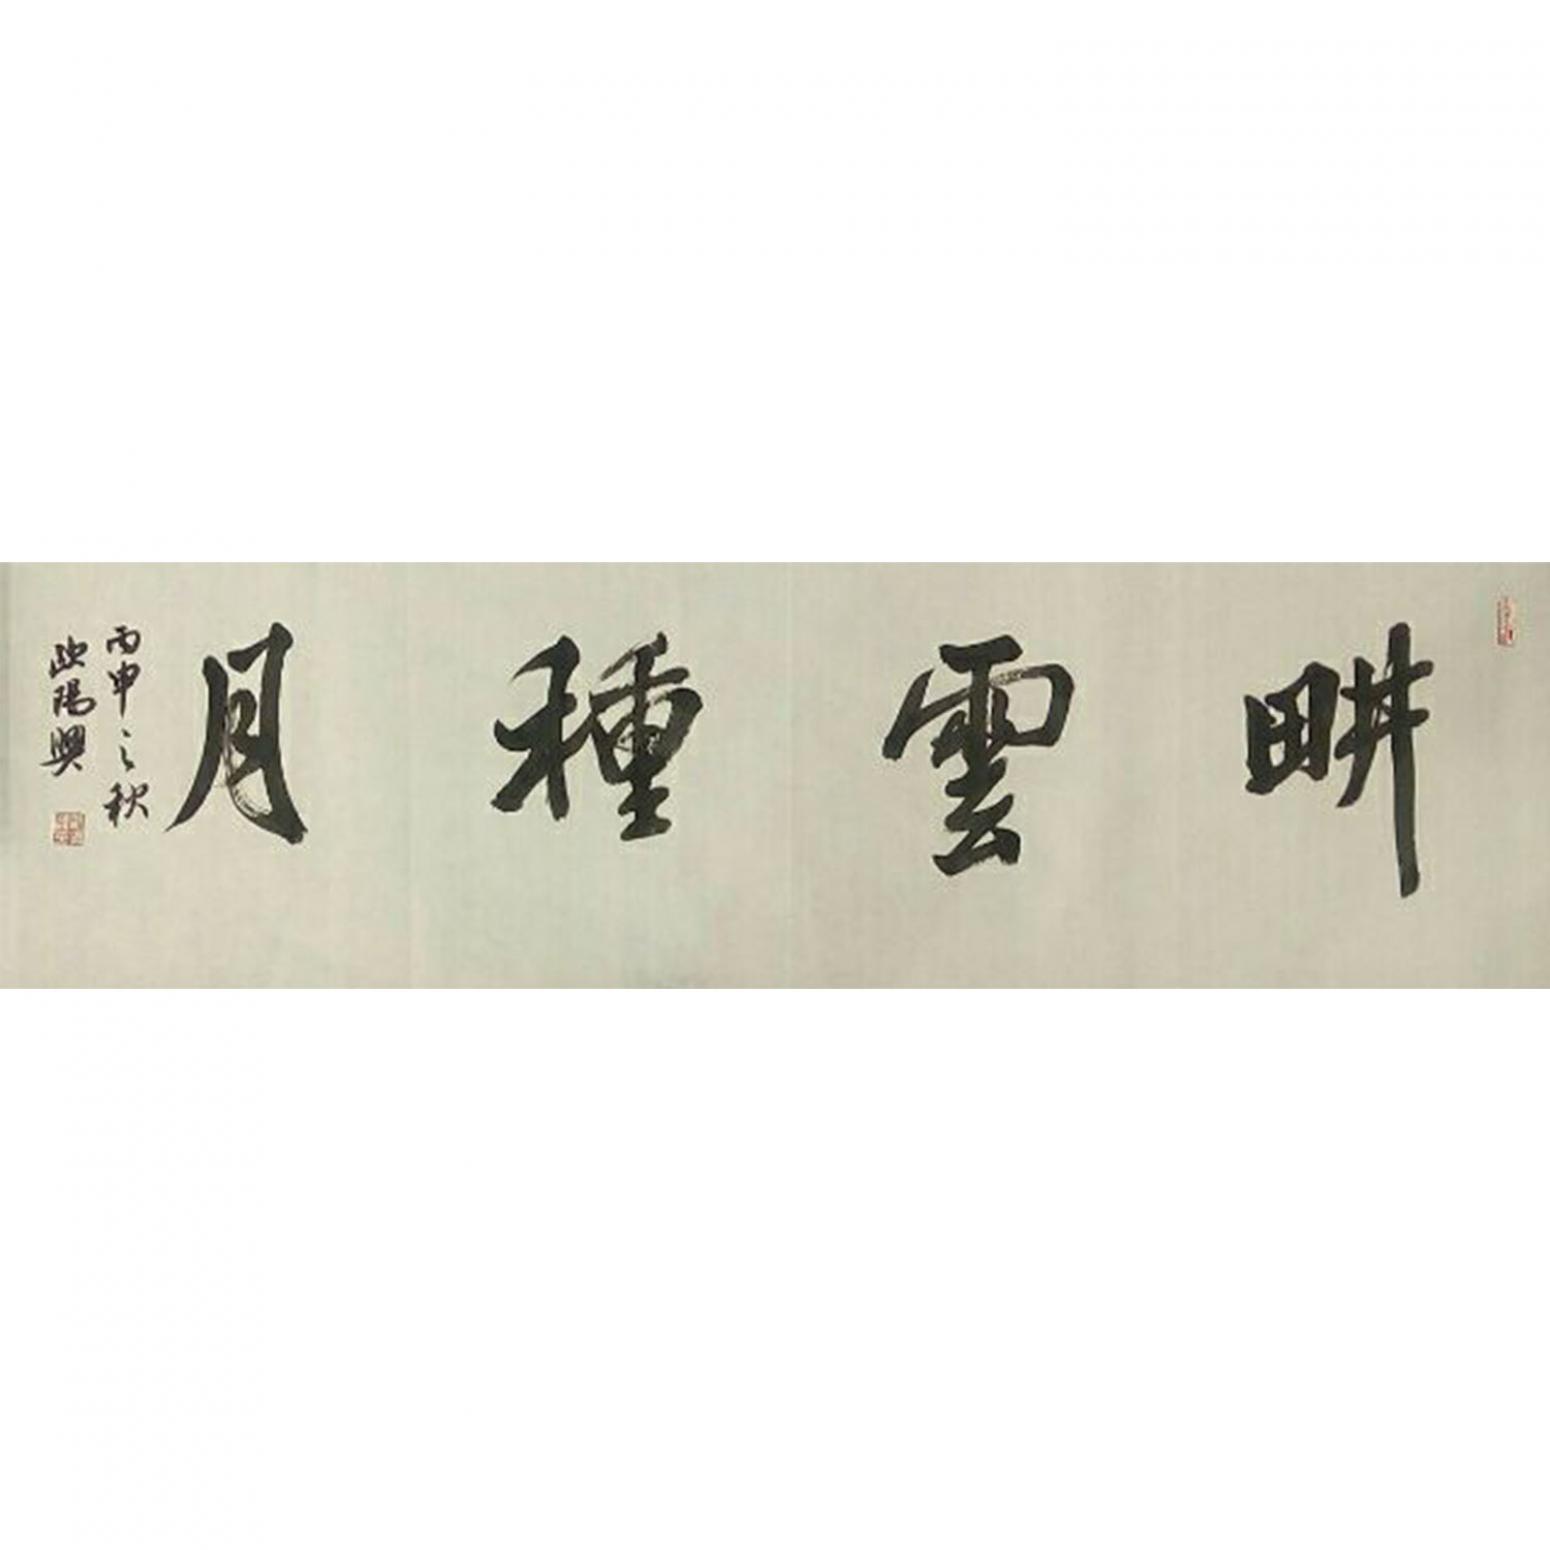 畊雲種月
丙申之秋
歐陽興